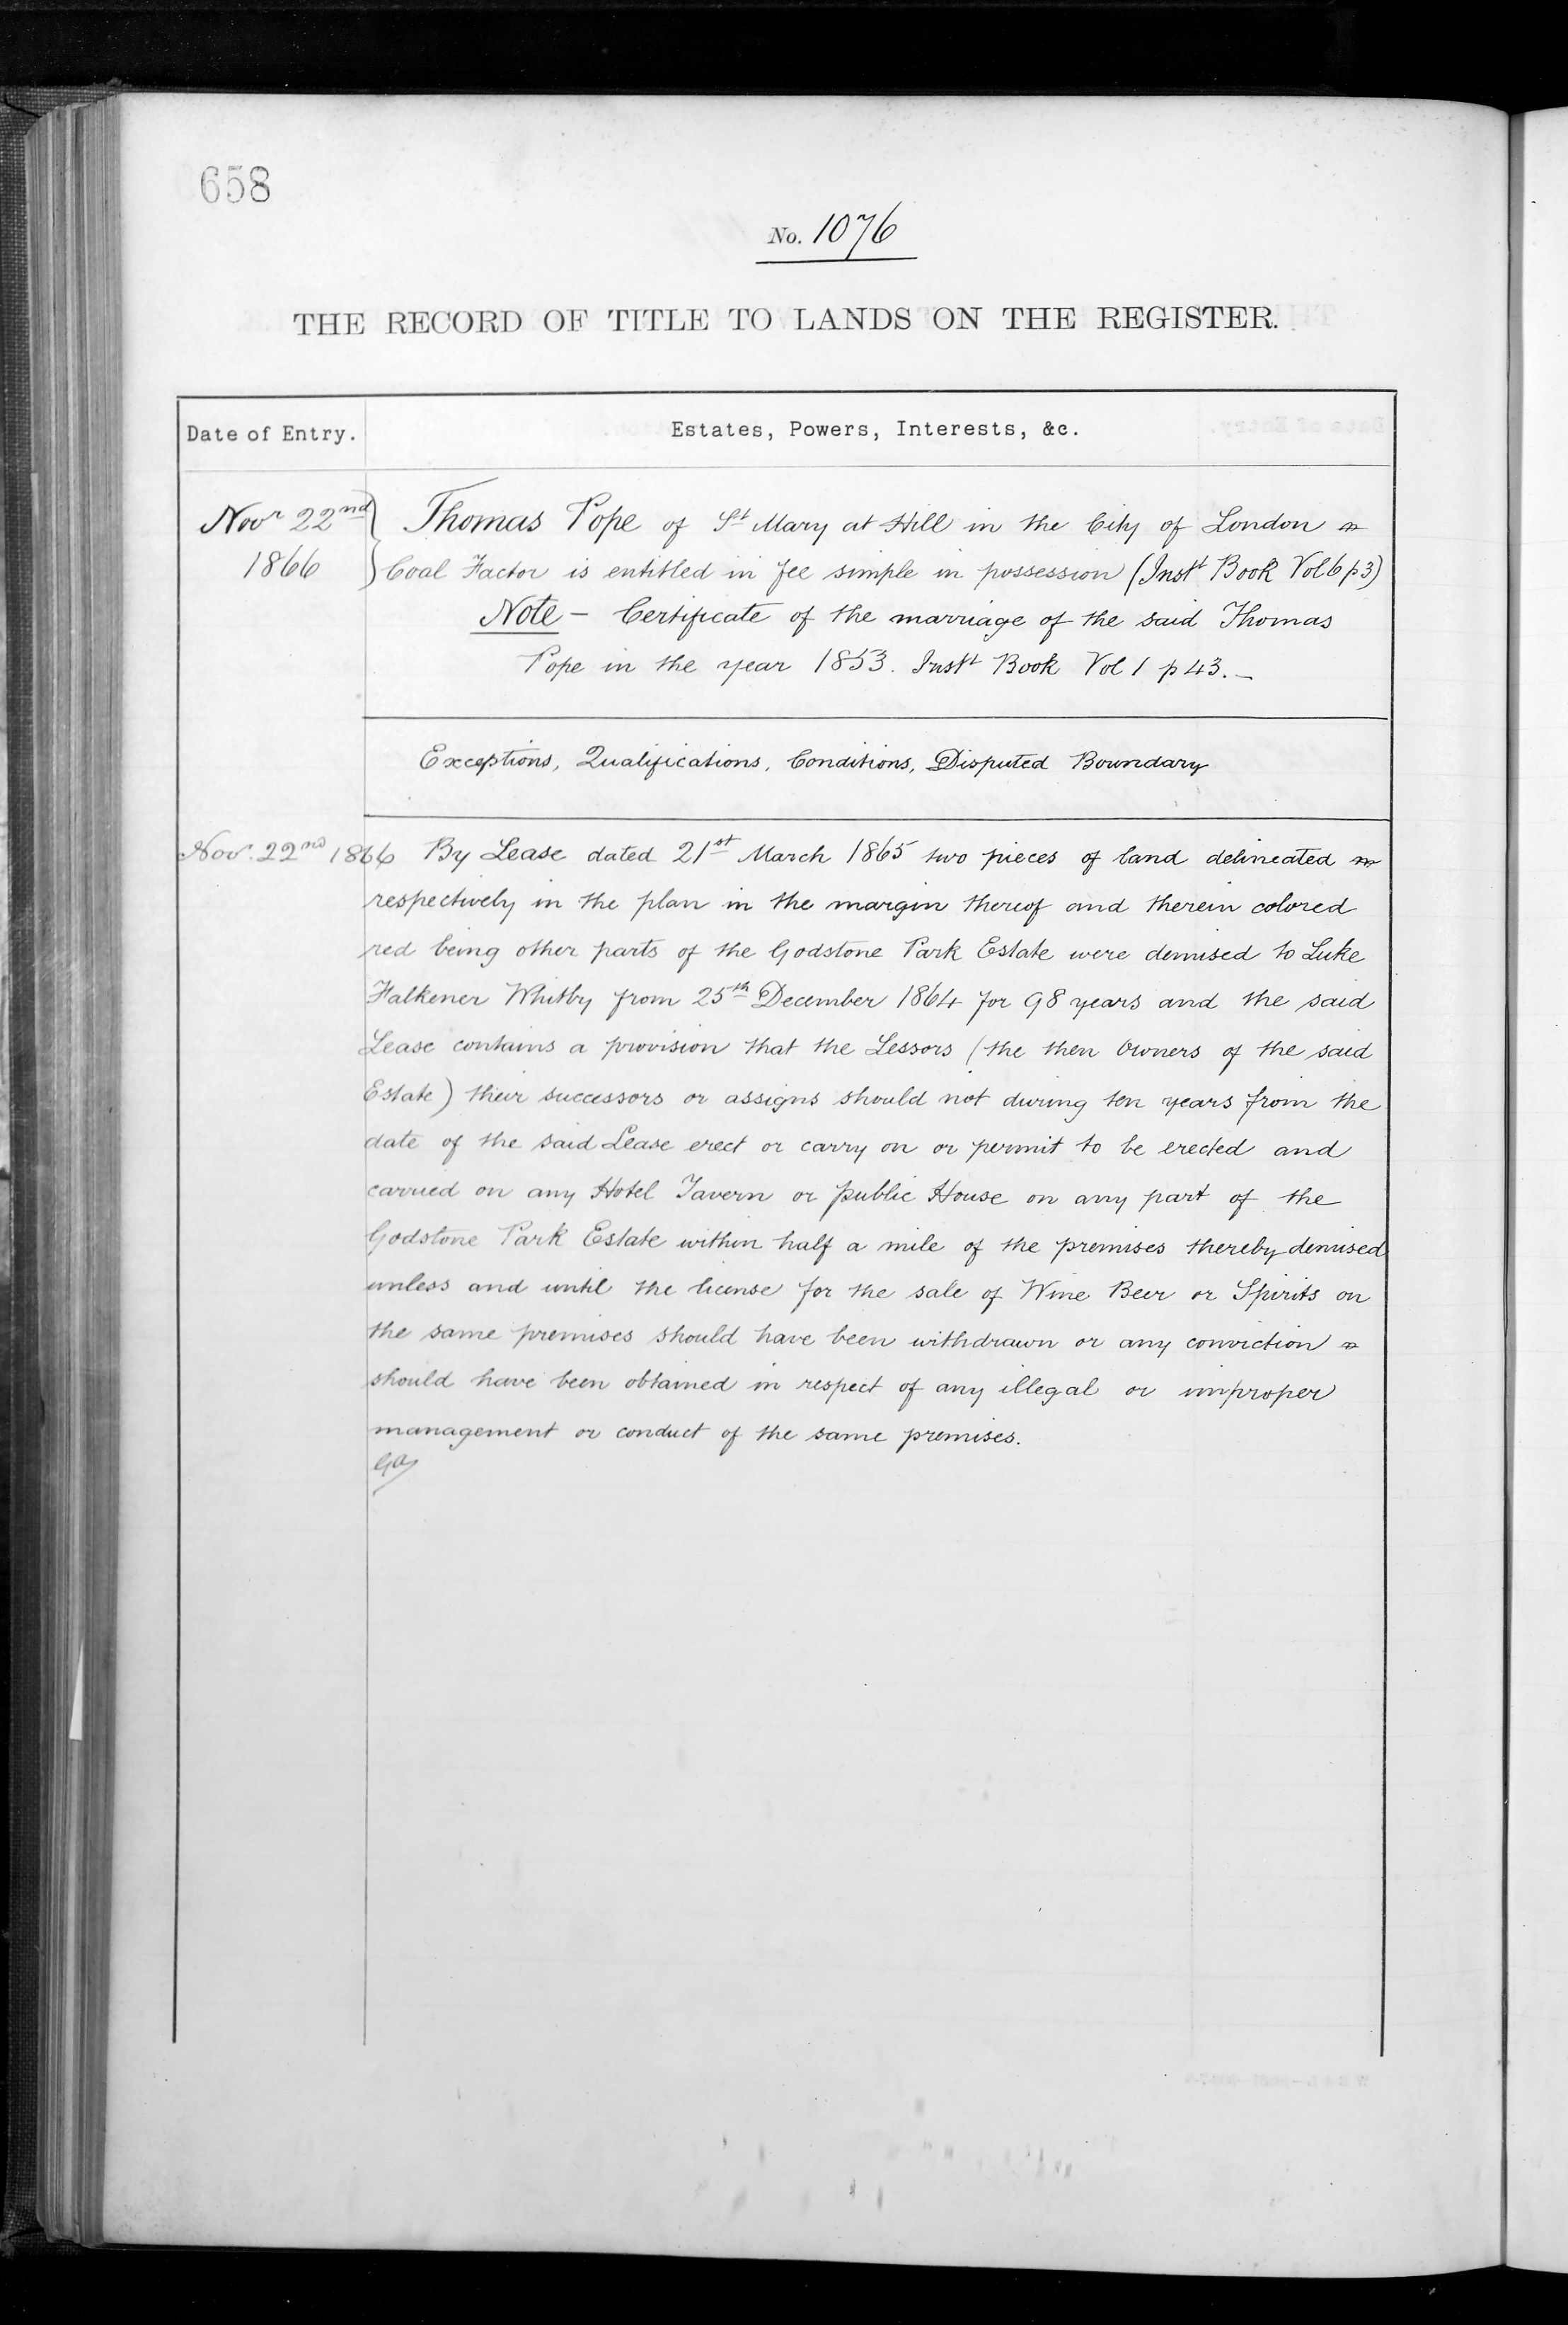 658
No. 1076
THE RECORD OF TITLE TO LANDS ON THE REGISTER.
Date of Entry.
Estates, Powers, Interests, &c.
Novr 22nd
1866
Thomas Pope of St Mary at Hill in the City of London
Coal Factor is entitled in fee simple in possession (Instt Book Vol 6 p 3)
Note – Certificate of the marriage of the said Thomas
Pope in the year 1853. Instt Book Vol 1 p 43. –
Exceptions, Qualifications, Conditions, Disputed Boundary
Nov. 22nd 1866
By Lease dated 21st March 1865 two pieces of land delineated
respectively in the plan in the margin thereof and therein colored
red being other parts of the Godstone Park Estate were demised to Luke
Falkener Whitby from 25th December 1864 for 98 years and the said
Lease contains a provision that the Lessors (the then Owners of the said
Estate) their successors or assigns should not during ten years from the
date of the said Lease erect or carry on or permit to be erected and
carried on any Hotel Tavern or public House on any part of the
Godstone Park Estate within half a mile of the premises thereby demised
unless and until the license for the sale of Wine Beer or Spirits on
the same premises should have been withdrawn or any conviction
should have been obtained in respect of any illegal or improper
management or conduct of the same premises.